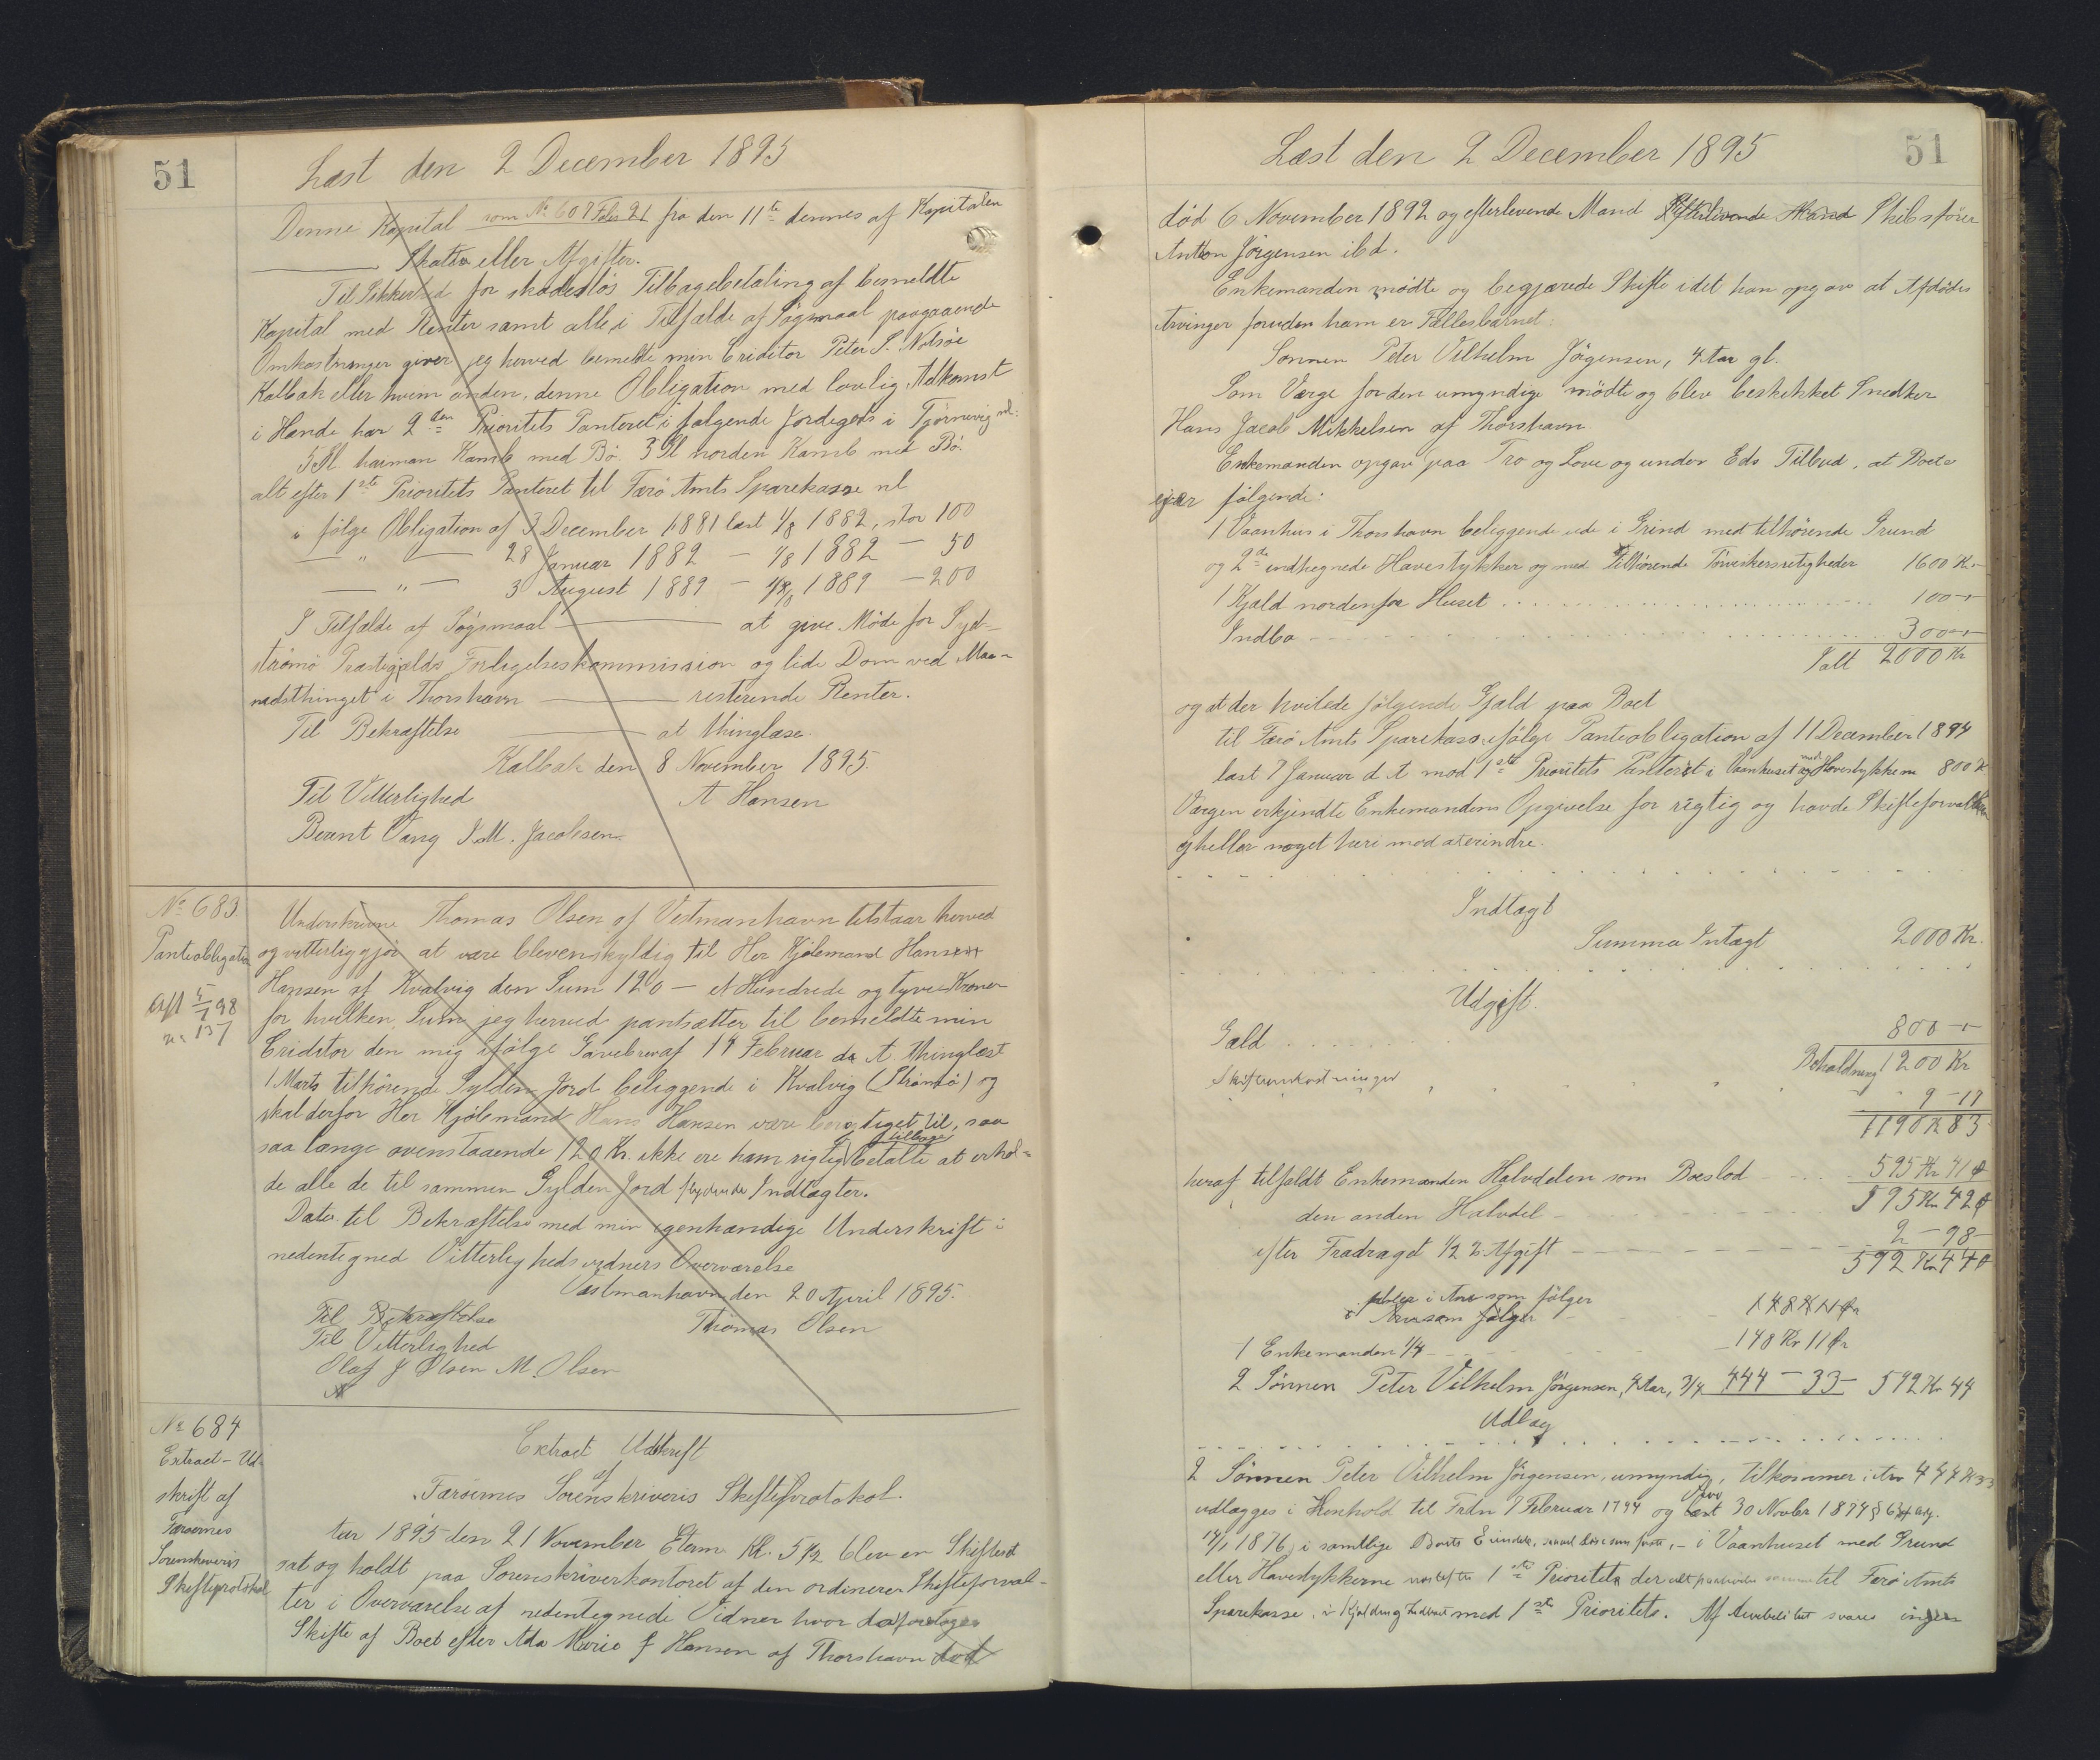 51
Læst den 2 December 1895
Denne Kapital som No 607 Folio 21 fra den 11te dennes af Kapitalen
Skatter eller Afgifter.
Til Sikkerhed for skadesløs Tilbagebetaling af bemeldte
Kapital med Renter samt alle i Tilfælde af Søgsmaal paagaaende
Omkostninger giver jeg herved bemeldte min Creditor Peter S. Nolsöe
Kalbak eller hvem anden, denne Obligation med lovlig Adkomst
i Hænde har 2den Prioritets Panteret i følgende Jordegods i Tjørnevig nl:
5 Gl heiman Kamb med Bö. 3 Gl norden Kamb med Bö.
alt efter 1ste Prioritets Panteret til Færö Amts Sparekasse nl
i følge Obligation af 3 December 1881 læst 4/8 1882, stor 100
— " — 28 Januar 1882 — 4/8 1882 — 50
— " — 3 August 1889 — 1889 — 200
I Tilfælde af Søgsmaal — at give Møde for Syd-
strömö Præstegjælds Forligelseskommission og lide Dom ved Maa-
nedsthinget i Thorshavn — resterende Renter.
Til Bekræftelse — at thinglæse.
Kalbak den 8 November 1895.
Til Vitterlighed A Hansen
Berent Vang J. M. Jacobsen.
No 683
Panteobligation
Afl 5/7 98
n: 137
Underskrevne Thomas Olsen af Vestmanhavn tilstaar herved
og vitterliggjør at være bleven skyldig til Her Kjøbmand Hans
Hansen af Kvalvig den Sum 120 — et Hundrede og tyve Kroner
for hvilken Sum jeg herved pantsætter til bemeldte min
Creditor den mig ifølge Gavebrev af 14 Februar da A. thinglæst
1 Marts tilhörende Gylden Jord beliggende i Kvalvig (Strömö) og
skal derfor Her Kjöbmand Hans Hansen være berettiget til, saa
saa længe ovenstaaende 120 Kr. ikke ere ham rigtig tilbage betalte at erhol-
de alle de til sammen Gylden Jord flydende Indtægter.
Dato til Bekræftelse med min egenhændige Underskrift i
nedentegned Vitterligheds vidners Overværelse
Vestmanhavn den 20 April 1895.
Til Bekræftelse
Til Vitterlighed Thomas Olsen
Olaf J Olsen M. Olsen
No 684
Extract-Ud-
skrift af
Færoernes
Sorenskriveris
Skifteprotokol
Extract Udskrift
af
Færoernes Sorenskriveris Skifteprotokol.
Aar 1895 den 21 November Eterm. Kl. 5 1/2 blev en Skifteret
sat og holdt paa Sorenskriverkontoret af den ordinerer Skifteforval-
ter i Overværelse af nedentegnede Vidner hvor da foretoges
Skifte af Boet efter Ada Marie f Hansen af Thorshavn död
51
Læst den 2 December 1895
död 6 November 1892 og efterlevende Mand Efterlevende Mand Skibsfører
Anton Jörgensen ibd.
Enkemanden mødte og begjærede Skifte idet han opgav at Afdödes
Arvinger foruden ham er Fællesbarnet:
Sønnen Peter Vilhelm Jörgensen, 4 Aar gl.
Som Værge for den umyndige mødte og blev beskikket Snedker
Hans Jacob Mikkelsen af Thorshavn.
Enkemanden opgav paa Tro og Love og under Eds Tilbud, at Boet
ejer følgende:
1 Vaanhus i Thorshavn beliggende ude i Grind med tilhörende Grund
og 2de indhegnede Havestykker og med tilhörende Törveskersretigheder 1600 Kr.
1 Kjald nordenfor Huset 100 —
Indbo 300 —
Ialt 2000 Kr
og at der hvilede følgende Gjæld paa Boet
til Færö Amts Sparekasse ifølge Panteobligation af 11 December 1894
læst 7 Januar d A mod 1ste Prioritets Panteret i Vaanhuset med og Havestykkerne 800 K
Værgen erkjendte Enkemandens Opgivelse for rigtig og havde Skifteforvalteren
ej heller noget heri mod at erindre.
Indtægt
Summa Intægt 2000 Kr.
Udgift.
Gæld 800 —
Beholdning 1200 Kr
Skifteomkostninger 9 — 17
1190 K 83
heraf tilfaldt Enkemanden Halvdelen som Boeslod 595 Kr 41 Ø
den anden Halvdel 595 Kr 42 Ø
efter Fradraget 1/2 % Afgift 2 — 98
592 Kr 44 Ø
i Arv som følger
148 K 11 Ør
1 Enkemanden 1/4 148 Kr 11 Ør
2 Sønnen Peter Vilhelm Jörgensen, 4 Aar, 3/4 444 — 33 592 Kr 44
Udlæg
2 Sønnen Peter Vilhelm Jörgensen, umyndig, tilkommer i Arv 444 K 33
udlægges i Henhold til Frdn 7 Februar 1794 og Lov 30 Novbr 1874 § 6
14/1 1876, i samtlige Boets Eiendele, — i Vaanhuset med Grund
eller Havestykkerne næstefter 1ste Prioritet til Færö Amts
Sparekasse, i Kjald og Indboet med 1ste Prioritet. Af svares ingen